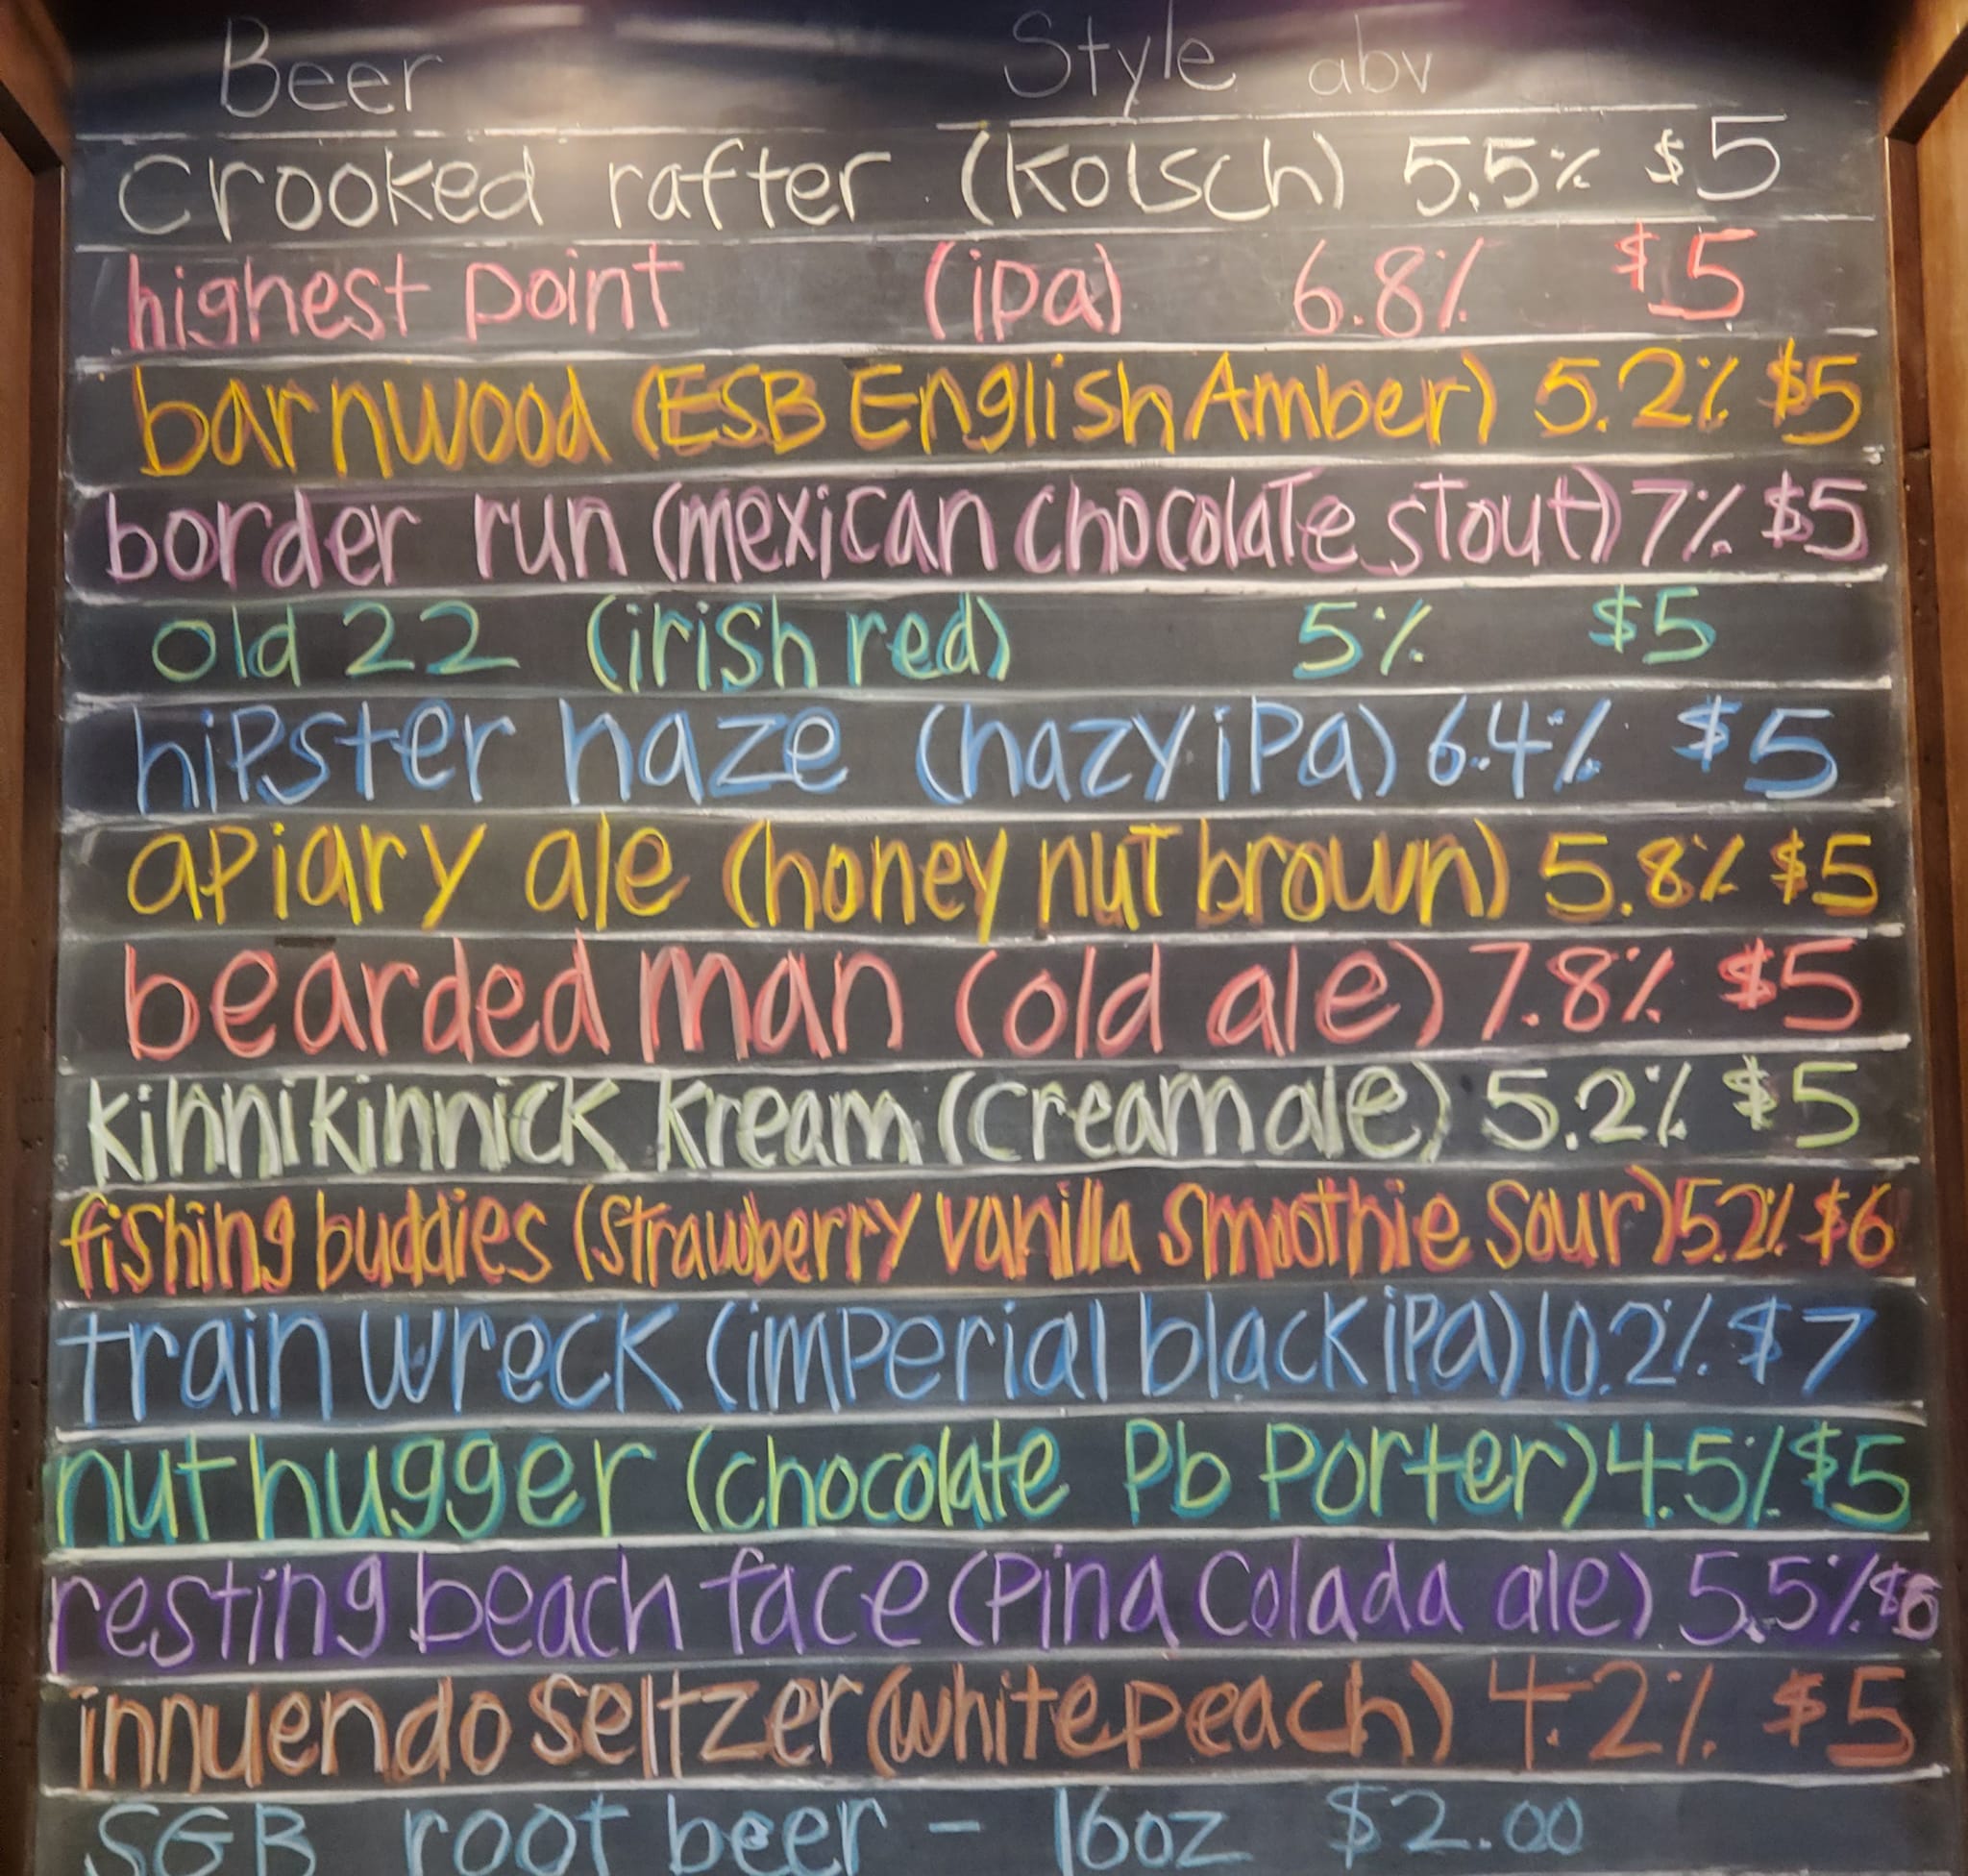 Beer Style abv
Crooked rafter (Kolsch) 5.5% $5
highest point (ipa) 6.8% $5
barnwood (ESB English Amber) 5.2% $5
border run (mexican chocolate stout) 7% $5
old 22 (irish red) 5% $5
hipster haze (hazy ipa) 6.4% $5
apiary ale (honey nut brown) 5.8% $5
bearded man (old ale) 7.8% $5
kinnikinnick kream (cream ale) 5.2% $5
fishing buddies (strawberry vanilla smoothie sour) 5.2% $6
train wreck (imperial black ipa) 10.2% $7
nut hugger (chocolate Pb Porter) 4.5% $5
resting beach face (Pina Colada ale) 5.5% $6
innuendo seltzer (white peach) 4.2% $5
SGB root beer - 16oz $2.00